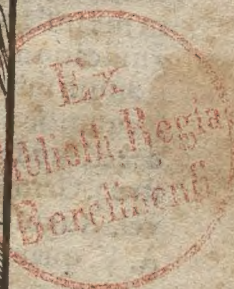 Ex
Biblioth. Regia
Berolinensi